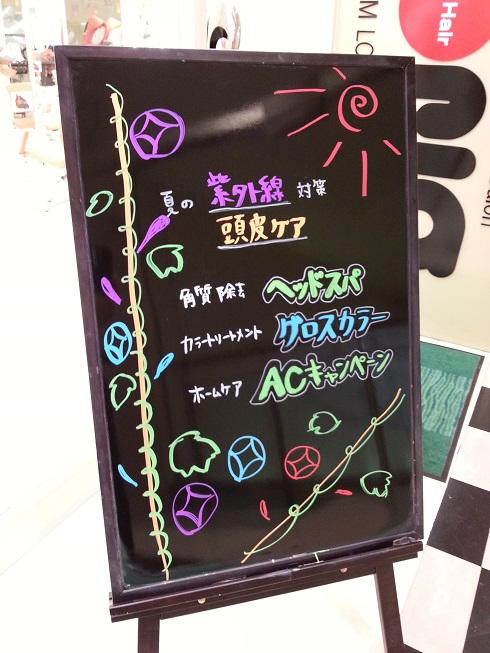 夏の 紫外線 対策
頭皮ケア
角質除去 ヘッドスパ
カラートリートメント グロスカラー
ホームケア ACキャンペーン
Hair